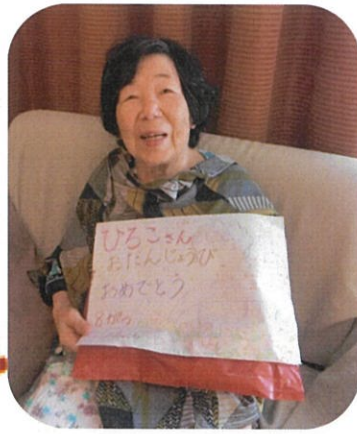 ひろこさん
おたんじょうび
おめでとう
8がつ